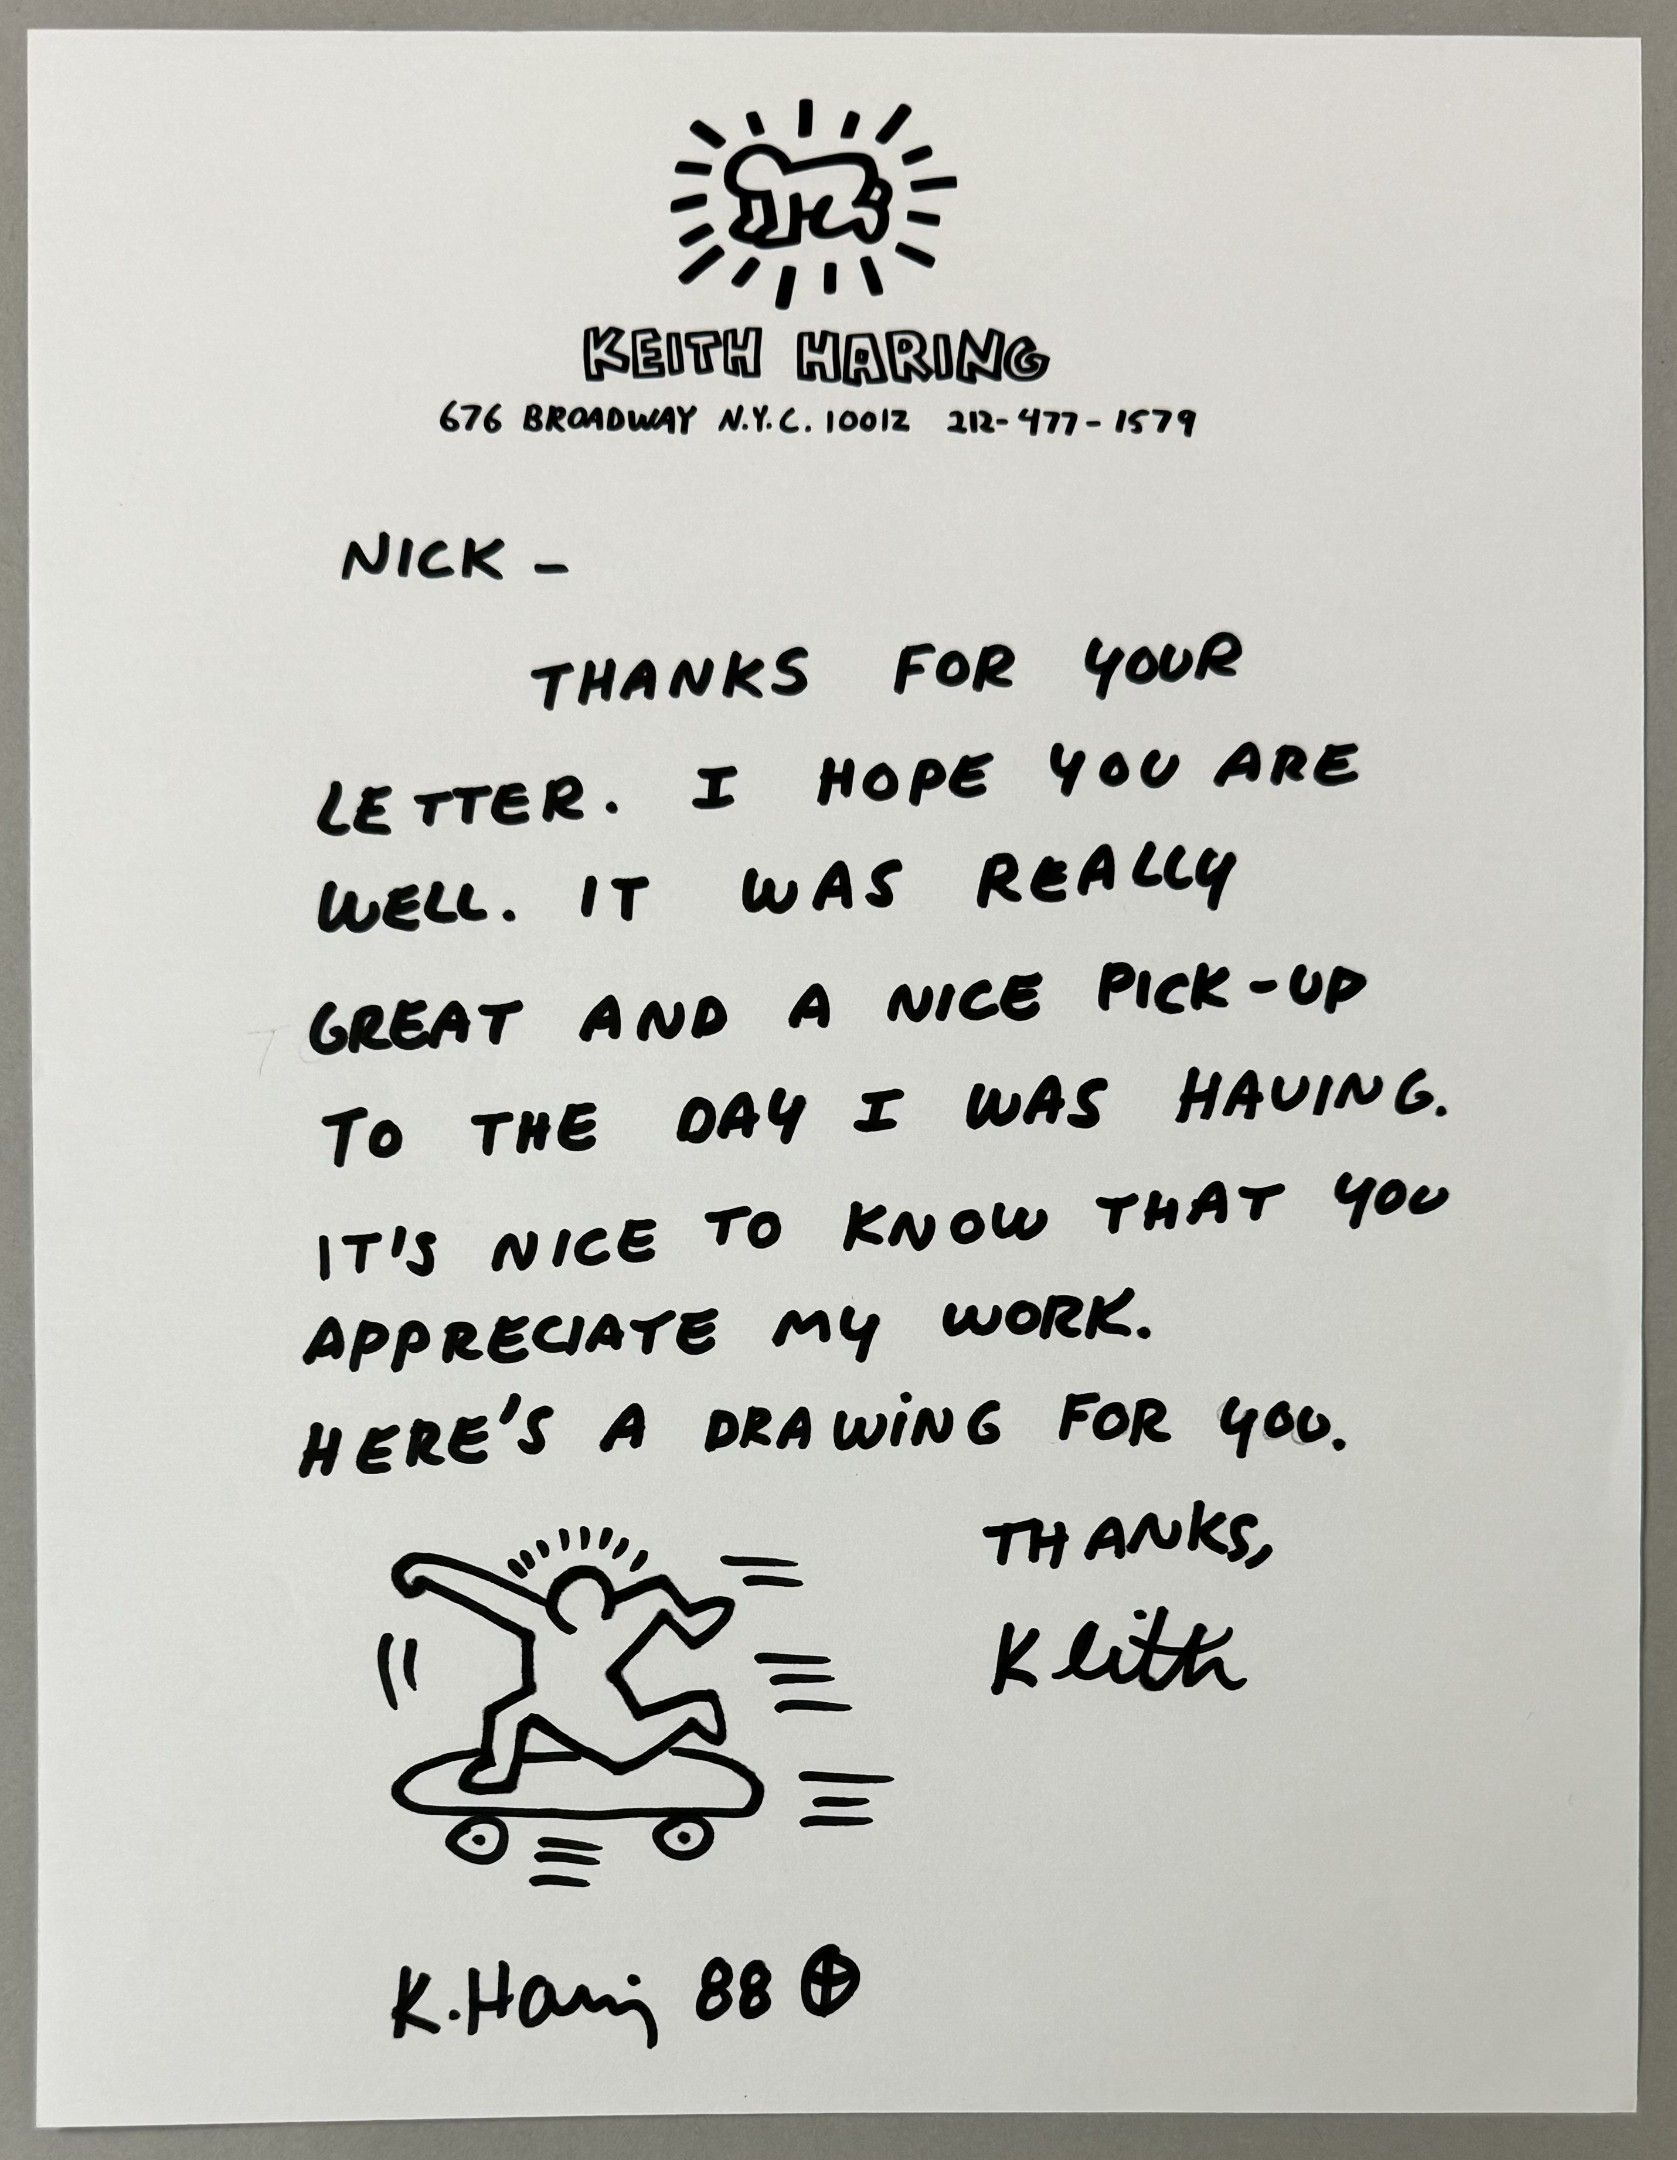 KEITH HARING
676 BROADWAY N.Y.C. 10012 212-477-1579
NICK -
THANKS FOR YOUR
LETTER. I HOPE YOU ARE
WELL. IT WAS REALLY
GREAT AND A NICE PICK-UP
TO THE DAY I WAS HAVING.
IT'S NICE TO KNOW THAT YOU
APPRECIATE MY WORK.
HERE'S A DRAWiNG FOR YOU.
THANKS,
Keith
K. Haring 88 ⊕